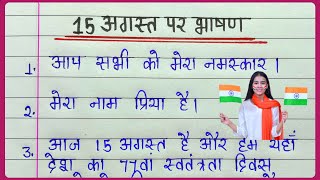 15 अगस्त पर भाषण
1. आप सभी को मेरा नमस्कार ।
2. मेरा नाम प्रिया है ।
3. आज 15 अगस्त है और हम यहाँ
देश का 77वां स्वतंत्रता दिवस